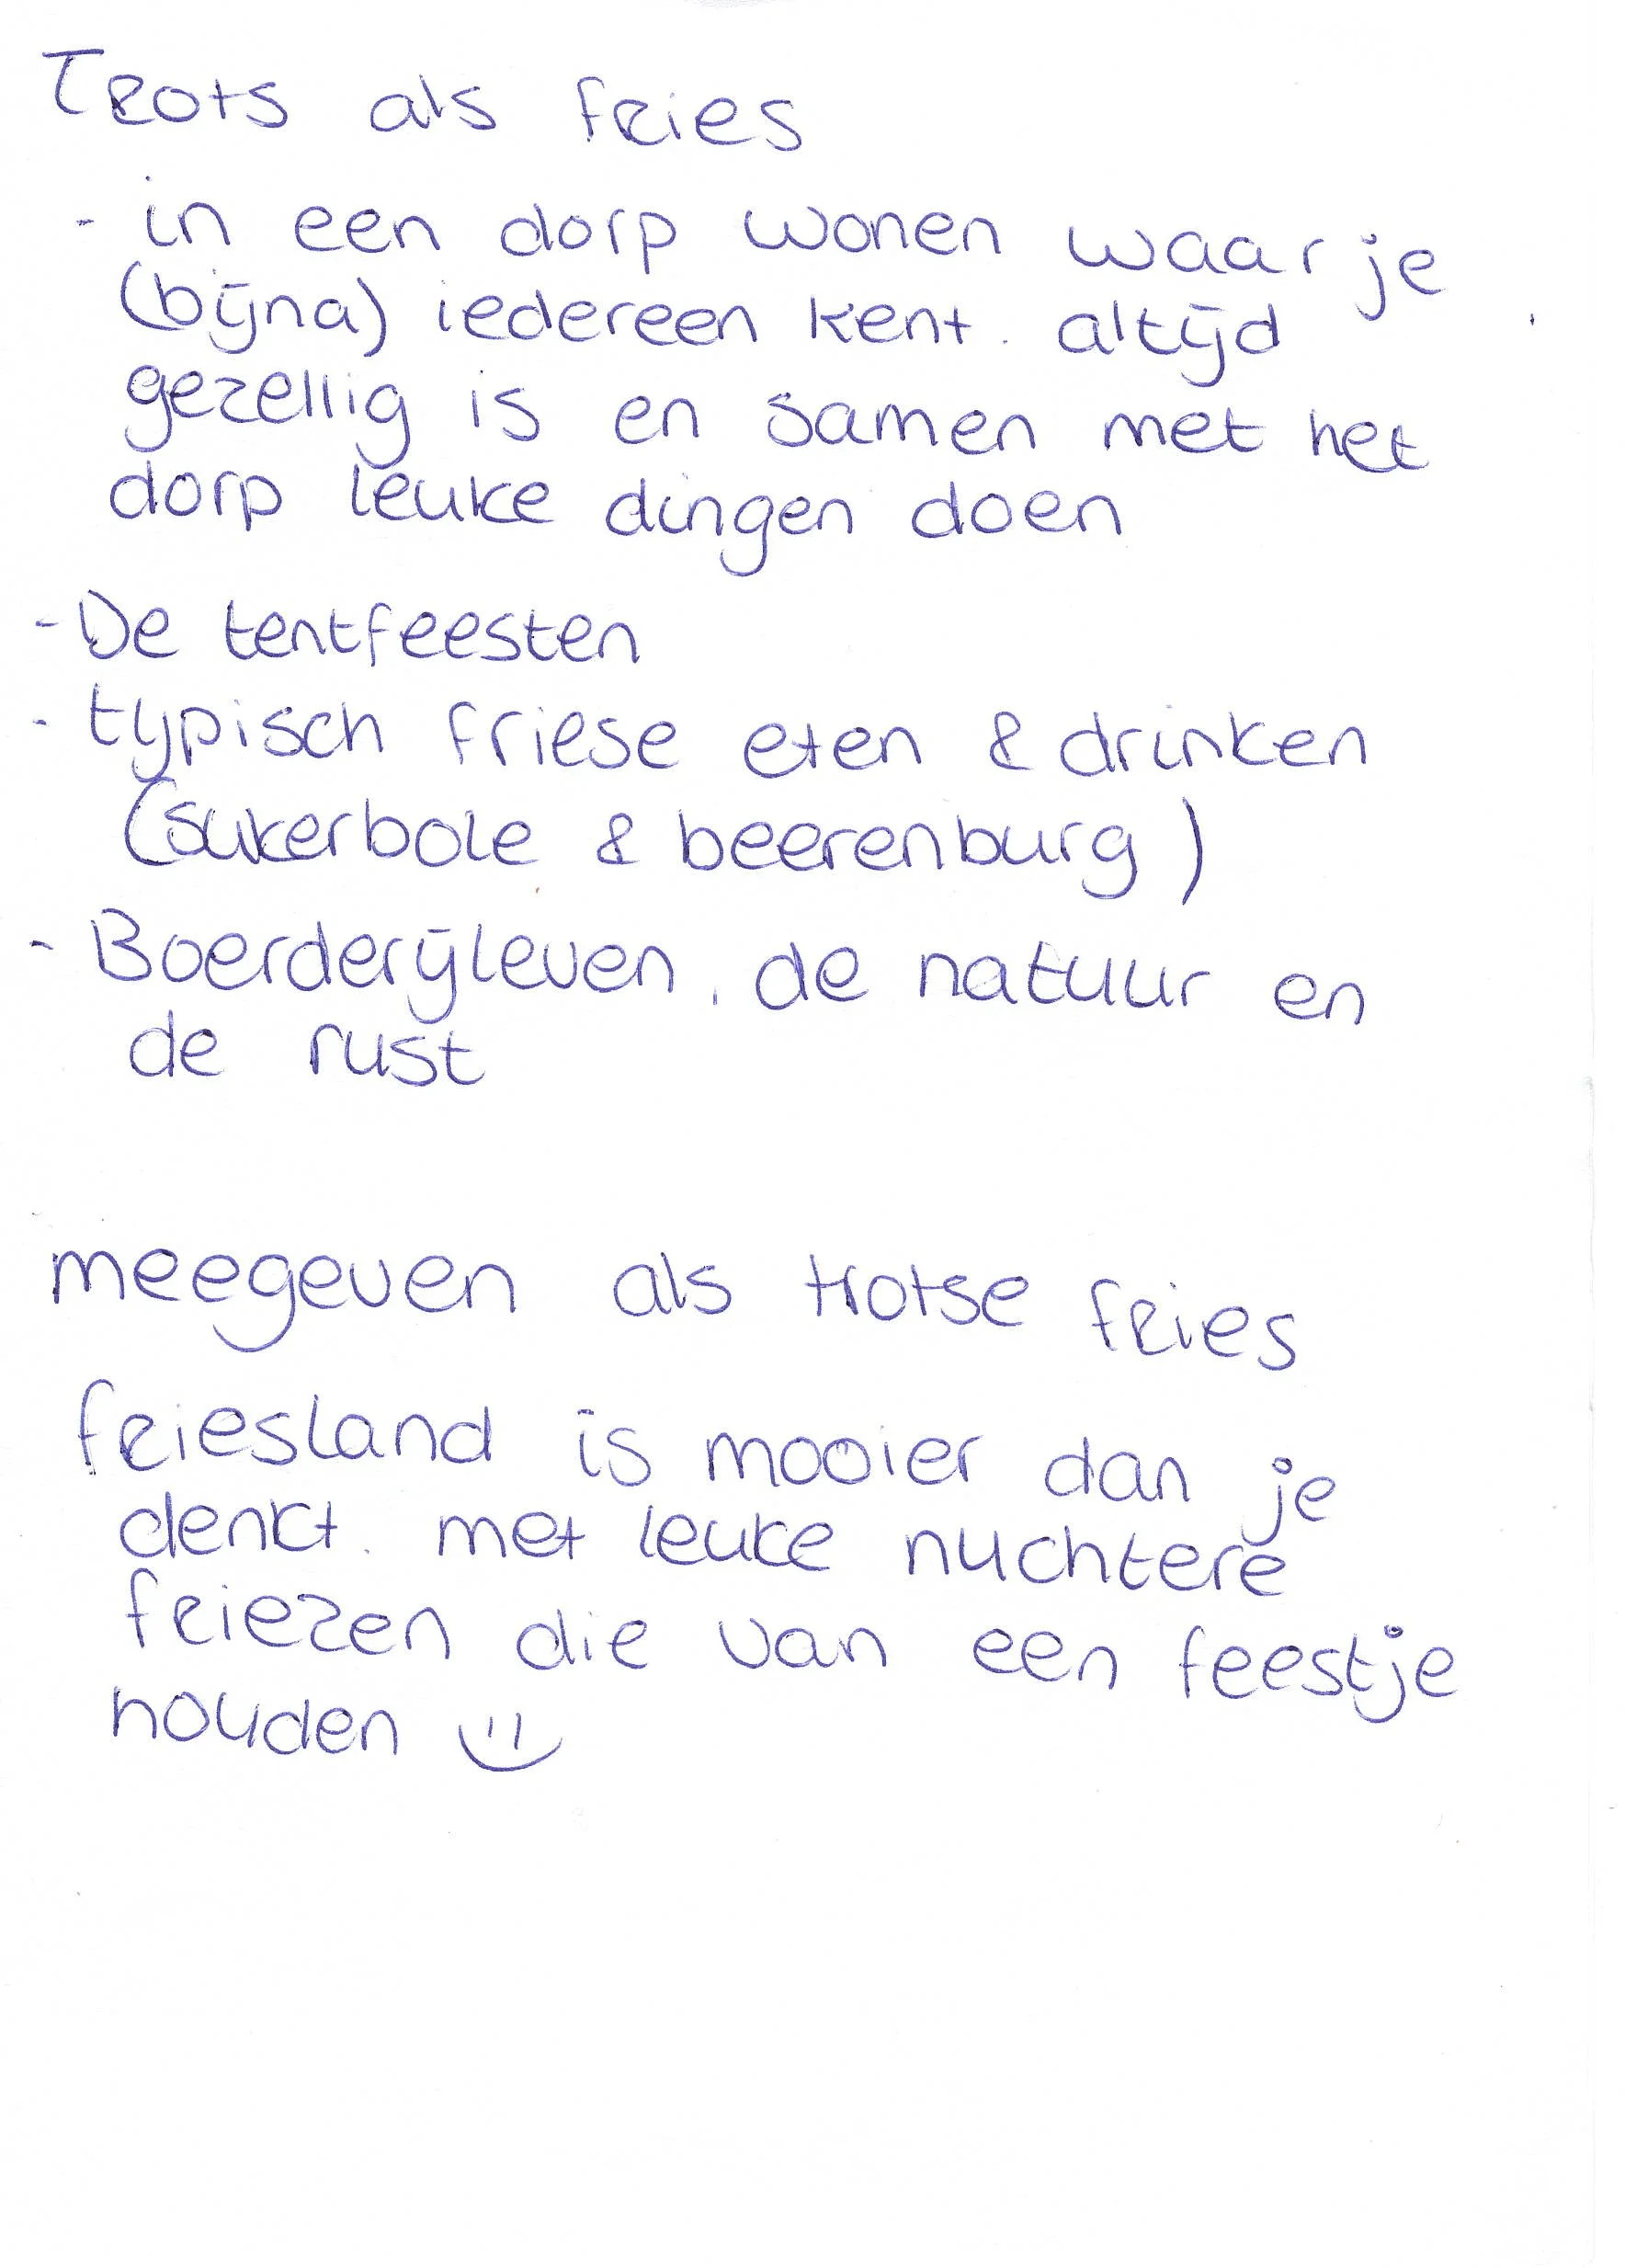 Trots als fries
- in een dorp wonen waar je
(bijna) iedereen kent. altijd
gezellig is en samen met het
dorp leuke dingen doen
- De tentfeesten
- typisch friese eten & drinken
(sukerbole & beerenburg)
- Boerderijleven, de natuur en
de rust
meegeven als trotse fries
friesland is mooier dan je
denkt. met leuke nuchtere
friezen die van een feestje
houden